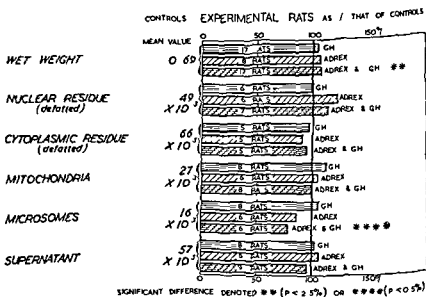 CONTROLS EXPERIMENTAL RATS AS / THAT OF CONTROLS
MEAN VALUE 0 50 100 150%
WET WEIGHT 0 69 17 RATS GH
8 RATS ADREX
17 RATS ADREX & GH **
NUCLEAR RESIDUE (defatted) 49 X 10³ 6 RATS GH
6 RATS ADREX
6 RATS ADREX & GH
CYTOPLASMIC RESIDUE (defatted) 66 X 10³ 5 RATS GH
ADREX
5 RATS ADREX & GH
MITOCHONDRIA 27 X 10³ 8 RATS GH
6 RATS ADREX
8 RATS ADREX & GH
MICROSOMES 16 X 10³ 8 RATS GH
6 RATS ADREX
6 RATS ADREX & GH ****
SUPERNATANT 57 X 10³ 8 RATS GH
6 RATS ADREX
9 RATS ADREX & GH
0 50 100 150%
SIGNIFICANT DIFFERENCE DENOTED **(P < 2 5%) OR ****(P < 0 5%)